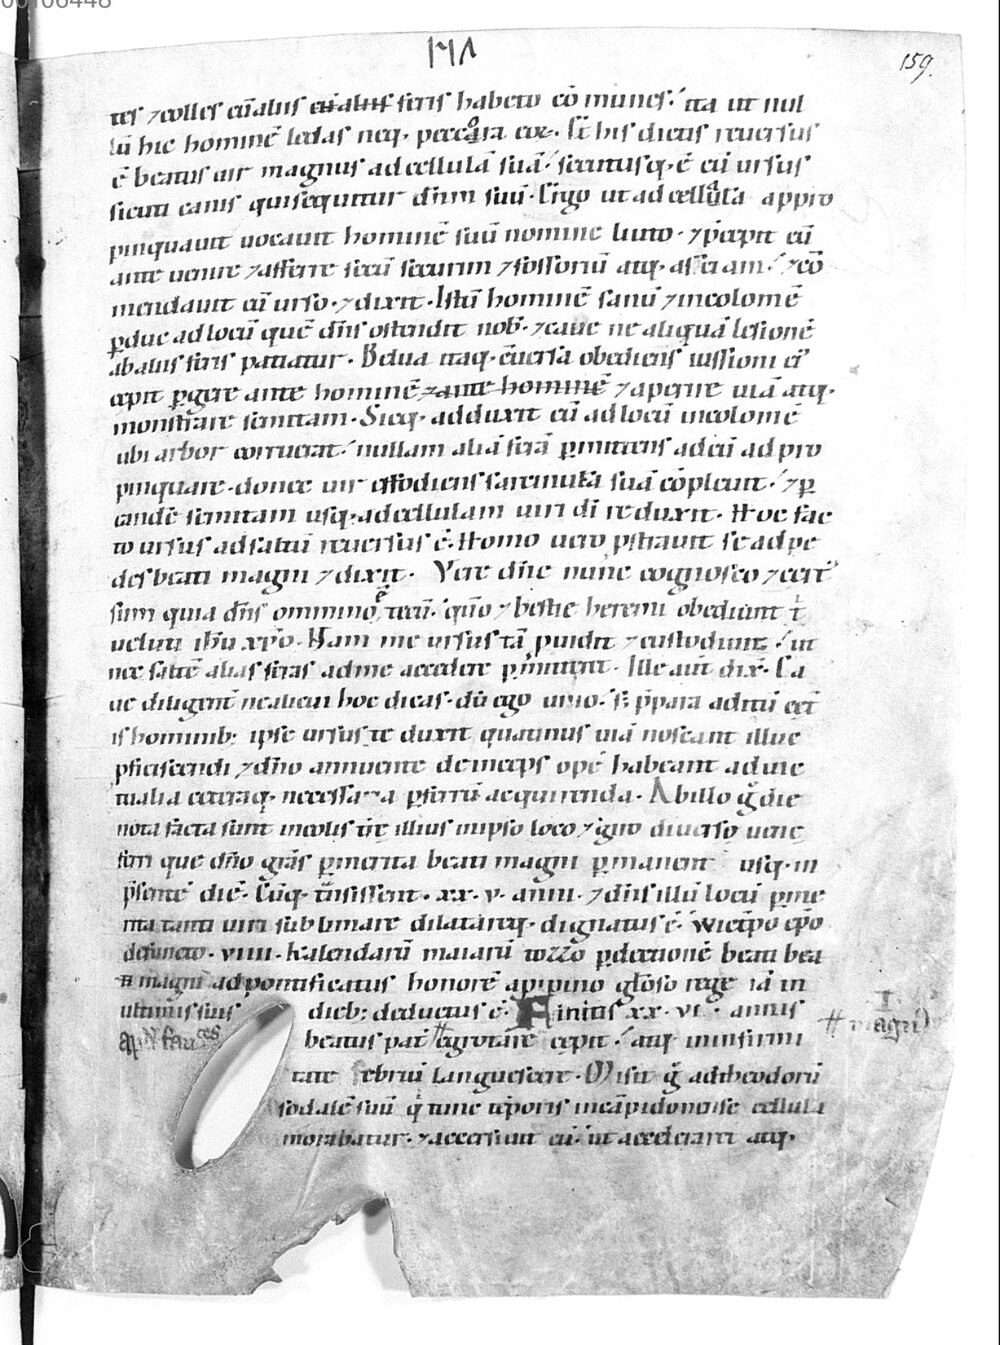 159.
tes ⁊ colles cū aliis feris habeto cōmunes. ita ut nul
lū hic hominē ledas neq; peccora eoꝝ. St his dictis reuersus
ē beatus uir magnus ad cellulā suā. secutusq; ē eū ursus
sicuti canis qui sequitur dn̄m suū. Ergo ut ad cellulā appro
pinquauit uocauit hominē suū nomine liuto. ⁊ p̄cepit eū
ante uenire ⁊ afferre secū securim ⁊ fossoriū atq; asciam. ⁊ cō
mendauit eū urso. ⁊ dixit. Istū hominē sanū ⁊ incolomē
ꝑduc ad locū quē dn̄s ostendit nob̄. ⁊ caue ne aliquā lesionē
ab aliis feris patiatur. Belua itaq; ēuersa obediens iussioni ei᾽
cepit ꝑgere ante hominē ⁊ ante hominē ⁊ aperire uiā atq;
monstrare semitam. Sicq; adduxit eū ad locū incolomē
ubi arbor corruerat. nullam aliā ferā ꝑmittens ad eū ad pro
pinquare. donec uir effodiens sarcinulā suā cōpleuit. ⁊ ꝑ
eandē semitam usq; ad cellulam uiri di reduxit. Hoc fac
to ursus ad saltū reuersus ē. Homo uero pstrauit se ad pe
des beati magni ⁊ dixit. Vere dn̄e nunc cognosco ⁊ cert
sum quia dn̄s omnino ē tecū. qn̄o ⁊ bestie heremi obediunt t̄
ueluti ihū xp̄o. Nam me ursus tā puidit ⁊ custodiuit. ut
nec saltē alias feras ad me accedere ꝑmitteret. Ille aut̄ dix̄. Ca
ue diligent̄ ne alicui hoc dicas. dū ego uiuo. s; p̄para aditū cet̄
is hominib; ipse ursus te duxit quatinus uiā noscant illuc
pficiscendi ⁊ dn̄o annuente deinceps opē habeant ad uic
tualia ceteraq; necessaria pferrū acquirenda. Ab illo g̊ die
nota facta sunt incolis t̄re illius in ipso loco
feri que dn̄o grās ꝑ merita beati magni ꝑmanent usq; in
p̄sentē diē. Cūq; t̄nsissent. xx. v. anni. ⁊ dn̄s illū locū ꝑ me
rita tanti uiri sublimare dilatareq; dignatus ē. wictpo ep̄o
defuncto. viiii. kalendarū maiarū tozzo ꝑ electionē beati bea
ti magni ad pontificatus honorē a pipino gl̄oso rege iā in
ultimis suis dieb; deductus ē. Finitis xx. vi. annis
beatus pat̄ egrotare cepit. atq; in infirmi
tate febriū languescere. Misit g̊ ad theodorū
sodalē suū q̄ tunc tp̄oris in cāpidonense cellula
morabatur. ⁊ accersiuit eū. ut acceleraret atq;
magni